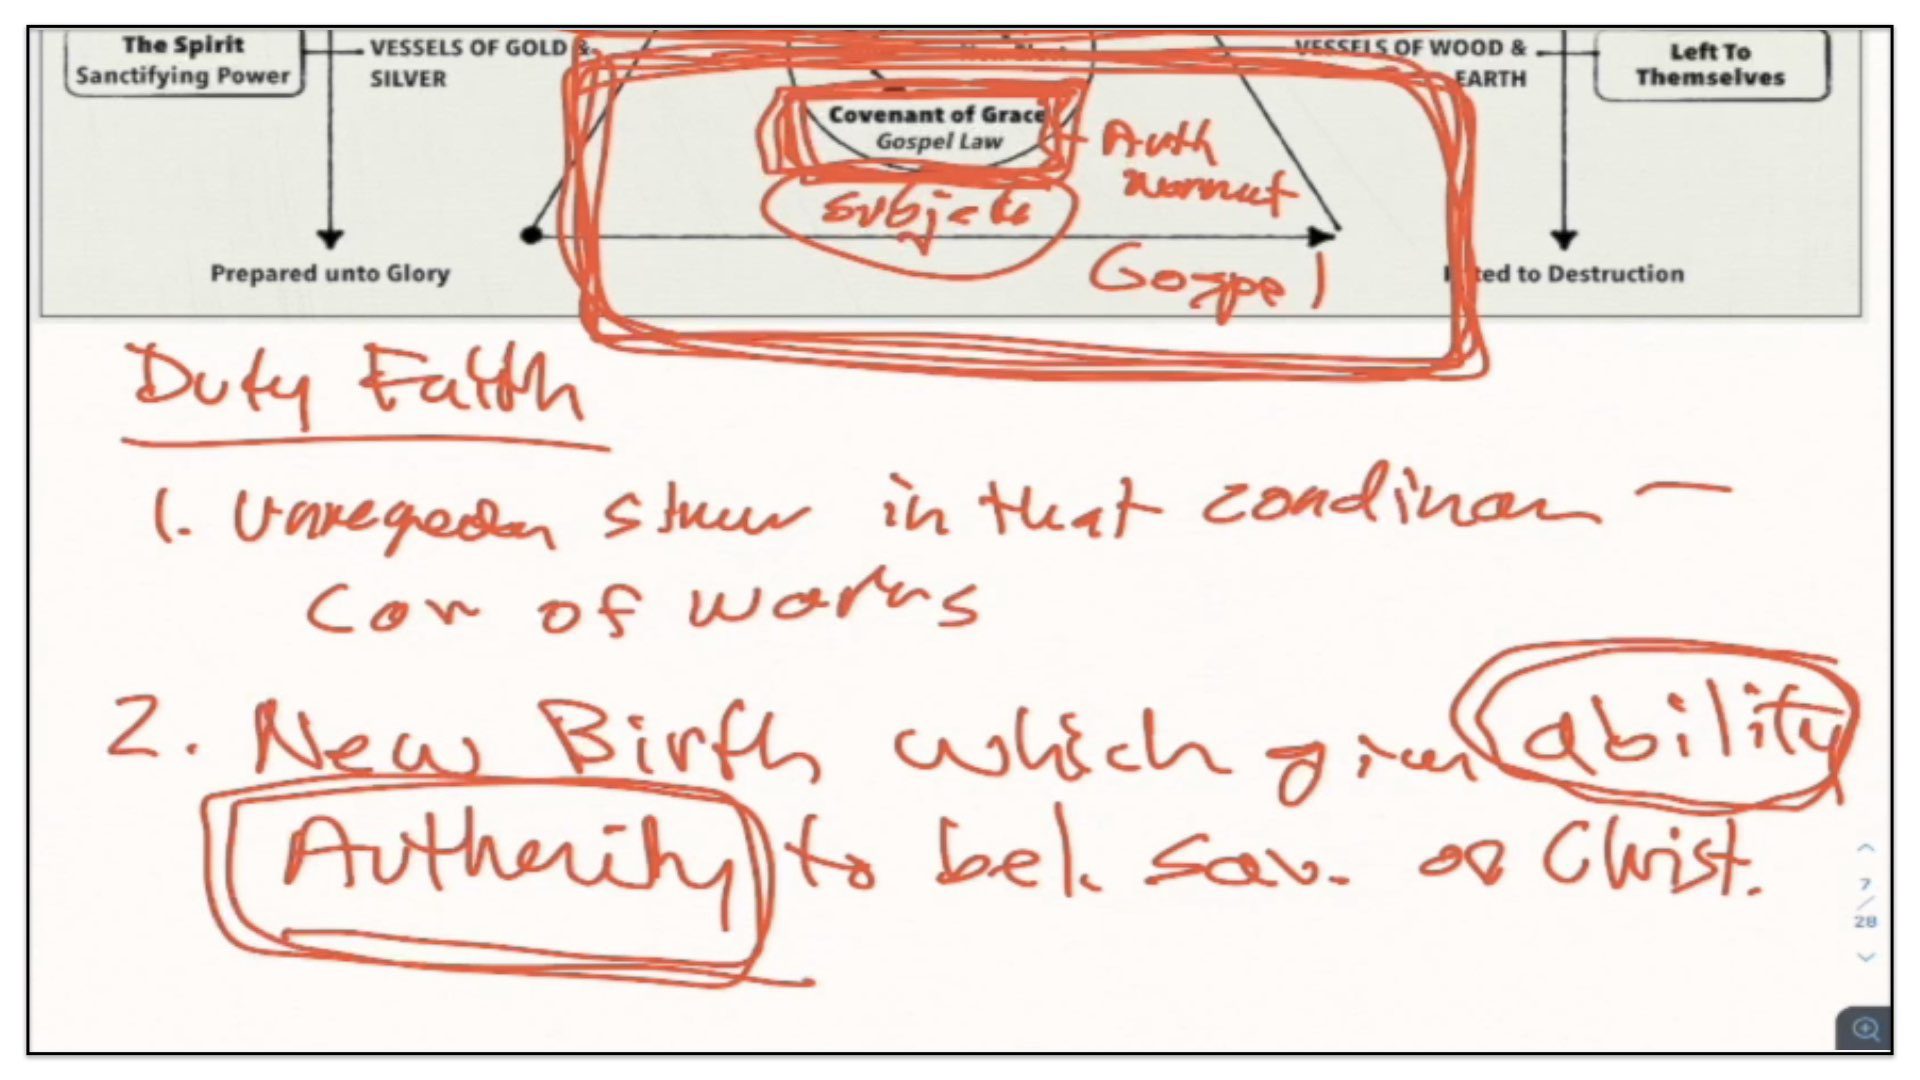 The Spirit
Sanctifying Power
VESSELS OF GOLD &
SILVER
VESSELS OF WOOD &
EARTH
Left To
Themselves
Covenant of Grace
Gospel Law
Auth
Subjects
Gospel
Prepared unto Glory
to Destruction
Duty Faith
1. in that
Cov of works
2. New Birth which ability
Authority to bel. sav. on Christ.
7
/
28